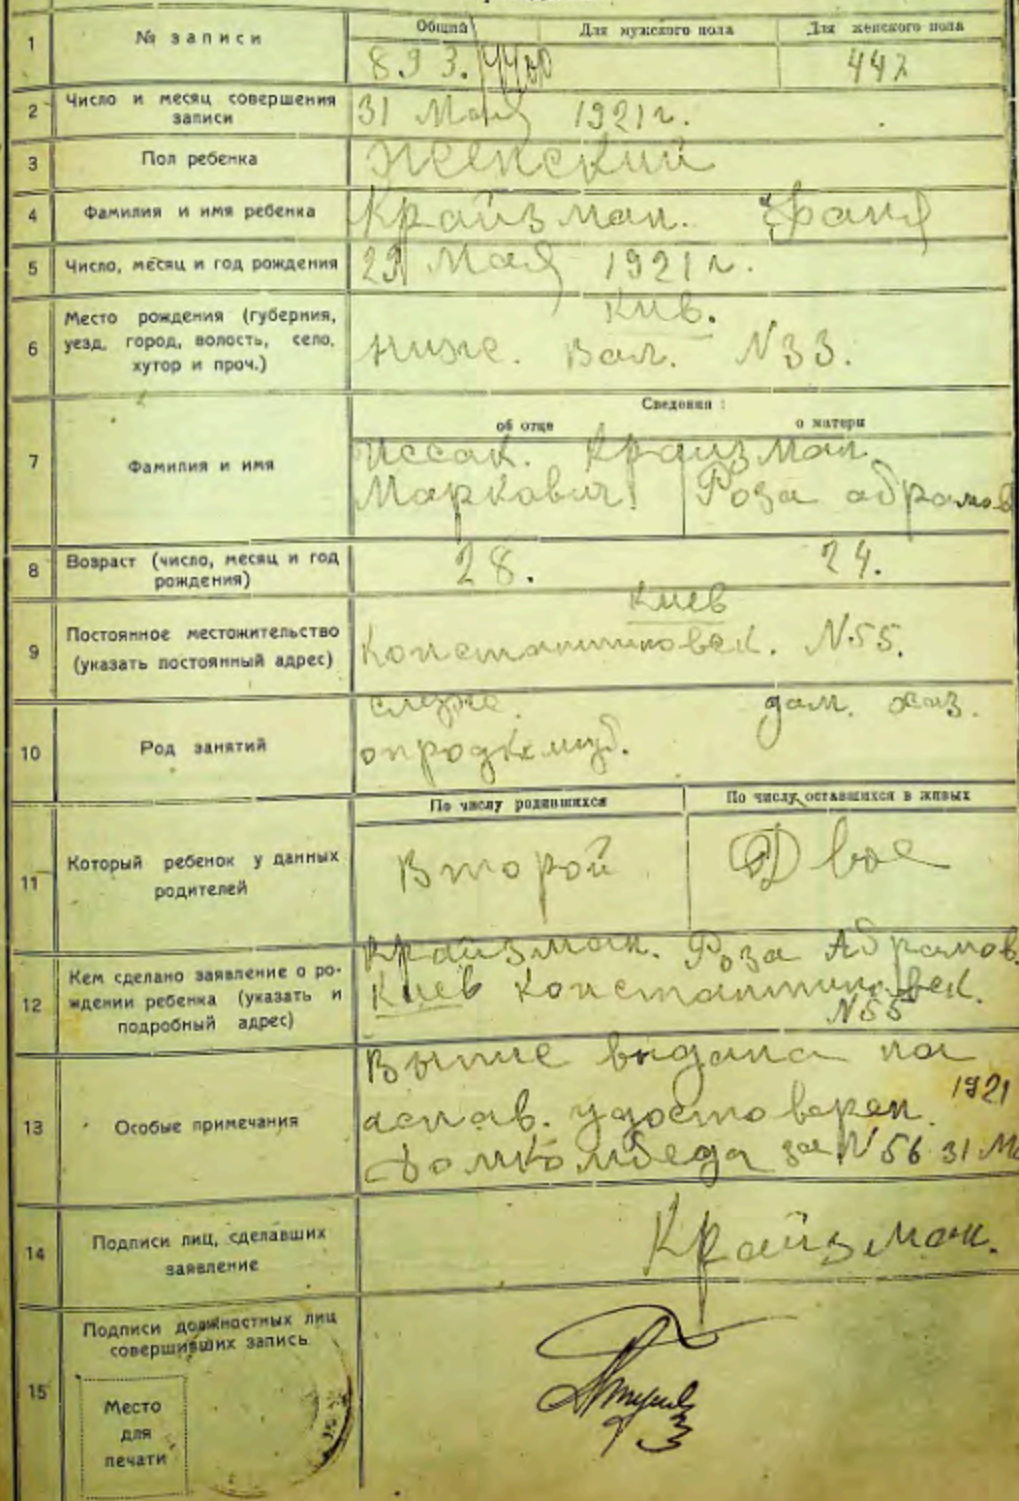 1 № записи
Общий Для мужского пола Для женского пола
893. 447
2 Число и месяц совершения записи
31 Мая 1921 г.
3 Пол ребенка
Женский
4 Фамилия и имя ребенка
Крайзман. Фаня
5 Число, месяц и год рождения
29 Мая 1921 г.
6 Место рождения (губерния,
уезд, город, волость, село,
хутор и проч.)
Киев.
Ниже. Вал. N 33.
Сведения:
об отце о матери
7 Фамилия и имя
Иссак. Крайзман.
Маркович Роза Абрамов
8 Возраст (число, месяц и год
рождения)
28. 24.
9 Постоянное местожительство
(указать постоянный адрес)
Киев
Константиновск. N 55.
10 Род занятий
служ. дом. хоз.
опродкомгуб.
По числу родившихся По числу оставшихся в живых
11 Который ребенок у данных
родителей
Второй Двое
12 Кем сделано заявление о ро-
ждении ребенка (указать и
подробный адрес)
Крайзман. Роза Абрамов.
Киев Константиновск.
N 55
13 Особые примечания
выдана на
удостоверен. 1921
Домкомбеда за N 56 31 Ма
14 Подписи лиц, сделавших
заявление
Крайзман.
15 Подписи должностных лиц
совершивших запись
Место
для
печати